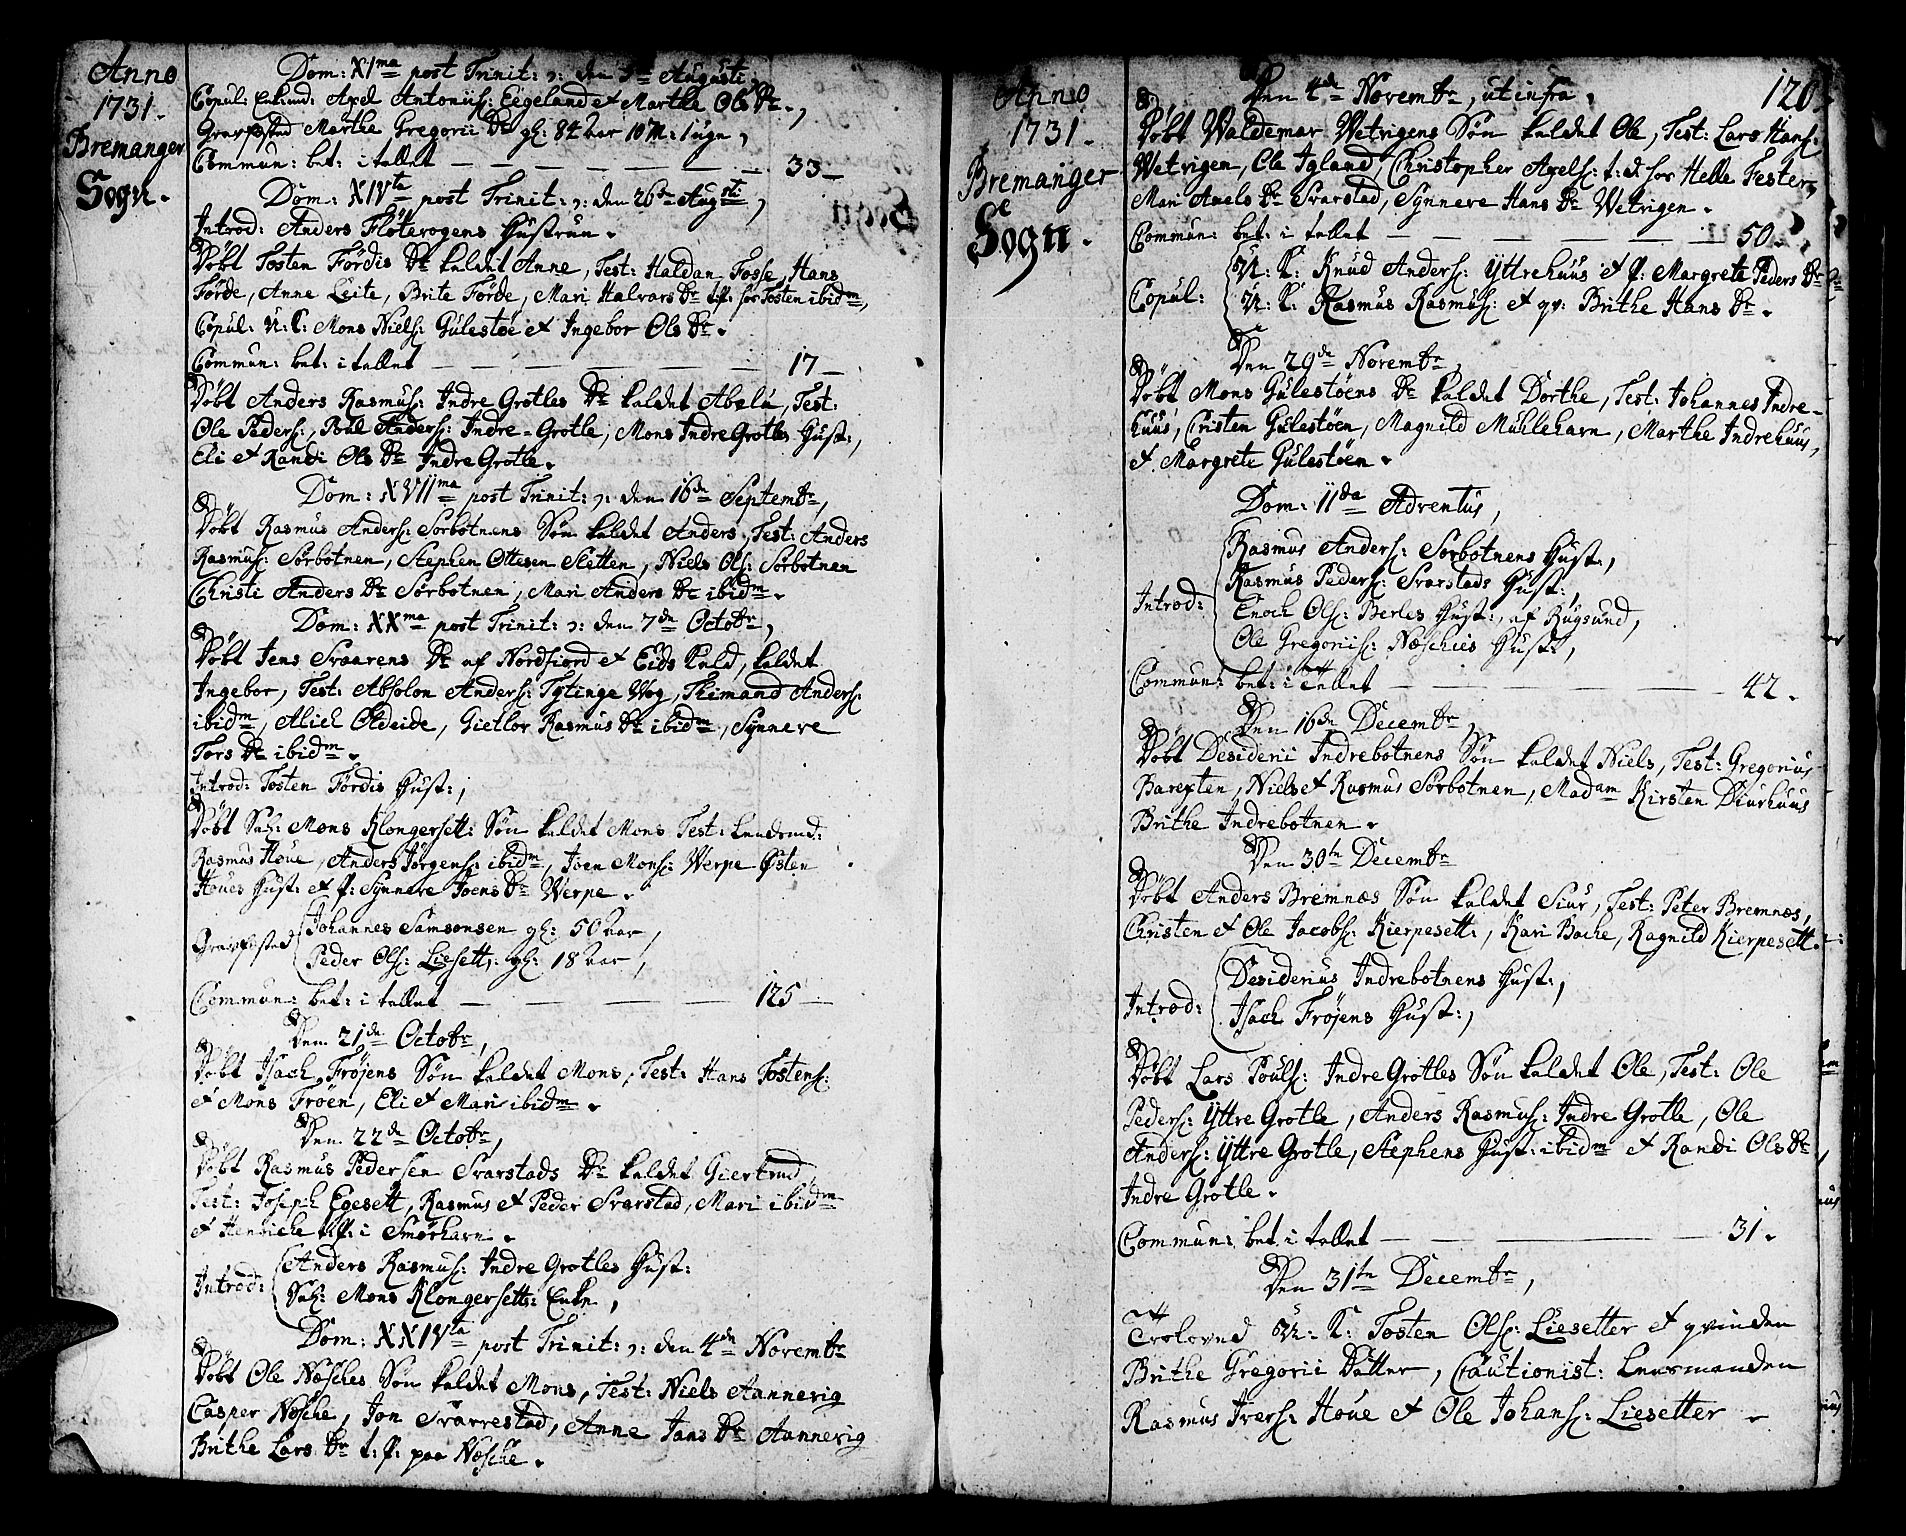 Anno
1731.
Bremanger
Sogn.
Dom: XIma post Trinit: ɔ: den 5te Augusti,
Copul: Enkemd: Axel Antoniis: Eegeland et Marthe Ols Dr.,
Grafpsted Marthe Gregorii Dr gl: 84 aar 10 M: 1 uge,
Commun: bet: i tallet — 33 —
Dom: XIVta post Trinit: ɔ: den 26de Augsti,
Introd: Anders Flöterogens Hustrue.
Döbt Tosten Fördis Dr kaldet Anne, Test: Haldan Fosse, Hans
Förde, Anne Leite, Brite Förde, Mari Halvars Dr t.p: for Tosten ibidm,
Copul: U: K: Mons Niels: Gulestöe et Ingebor Ols Dr.
Commun: bet: i tallet — 17 —
Döbt Anders Rasmus: Indre Grotles Dr kaldet Abelu, Test:
Ole Peders:, Poul Anders: Indre-Grotle, Mons Indre Grotles Hust:,
Eli et Randi Ols Dr Indre Grotle.
Dom: XVIIma post Trinit: ɔ: den 16de Septembr,
Döbt Rasmus Anders: Sorbotnens Søn kaldet Anders, Test: Anders
Rasmus: Sörbotnen, Stephen Ottesen Sletten, Niels Ols: Sorbotnen
Christi Anders Dr Sorbotnen, Mari Anders Dr ibidm.
Dom: XXma post Trinit: ɔ: den 7de Octobr,
Döbt Jens Svaarens Dr af Nordfiord et Eids kald, kaldet
Ingebor, Test: Absolon Anders: Tytinge Vog, Thimand Anders:
ibidm, Aliel Oldeide, Gietlor Rasmus Dr ibidm, Synnere
Tors Dr ibidm.
Introd: Tosten Fördis Hust:,
Döbt Sal: Mons Klongersett: Søn kaldet Mons Test: Lendsmd:
Rasmus Houe, Anders Jørgens: ibidm, Joen Mons: Verpe Østen
Houes Hust: et p: Synnere Joens Dr Verpe.
Grafpsted Johannes Samsonsen gl: 50 aar,
Peder Ols: Liesett: gl: 18 aar,
Commun: bet: i tallet — 125 —
Den 21de Octobr,
Döbt Isach Fröjens Søn kaldet Mons, Test: Hans Tostens:
et Mons Fröen, Eli et Mari ibidm.
Den 22de Octobr,
Döbt Rasmus Pedersen Svarstads Dr kaldet Giertrud,
Test: Joseph Egesett, Rasmus et Peder Svarstad, Mari ibidm
et Henriche t.p: i Smørhavn.
Introd: Anders Rasmus: Indre Grotles Hust:
Sal: Mons Klongersetts: Enke,
Dom: XXIVta post Trinit: ɔ: den 4de Novembr
Döbt Ole Nøsches Søn kaldet Mons, Test: Niels Aannevig
Casper Nøsche, Jon Svarrestad, Anne Jans Dr Aannevig
Brithe Lars Dr t: p: paa Nøsche.
Anno
1731.
Bremanger
Sogn.
120.
Den 4de Novembr, ut infra,
Döbt Waldemar Vetrigens Søn kaldet Ole, Test: Lars Hans:
Vetrigen, Ole Igland, Christopher Axels: t: d: for Helle Fester,
Mari Axels Dr Svarstad, Synnere Hans Dr Vetrigen.
Commun: bet: i tallet — 50.
Copul: U: K: Knud Anders: Yttrehuus et p: Margrete Peders Dr
U: K: Rasmus Rasmus: et qv: Brithe Hans Dr.
Den 29de Novembr,
Döbt Mons Gulestöens Dr kaldet Dorthe, Test: Johannes Indre-
huus, Cristen Gulestöen, Magnild Muhlehavn, Marthe Indrehuus,
et Margrete Gulestöen.
Dom: IIda Adventus,
Introd: Rasmus Anders: Sorbotnens Hust:,
Rasmus Peders: Svarstads Hust:,
Enoch Ols: Berles Hust:, af Rugsund,
Ole Gregoriis: Nøschies Hust:,
Commun: bet: i tallet — 42.
Den 16de Decembr,
Döbt Desiderii Indrebotnens Søn kaldet Niels, Test: Gregorius
Barexten, Niels et Rasmus Sorbotnen, Madam Kirsten Diurhuus
Brithe Indrebotnen.
Den 30te Decembr
Döbt Anders Bremnæs Søn kaldet Siur, Test: Peter Bremnæs,
Christen et Ole Jacobs: Kierpesett:, Kari Bache, Ragnild Kierpesett.
Introd: Desiderius Indrebotnens Hust:,
Isach Fröjens Hust:,
Döbt Lars Pouls: Indre Grotles Søn kaldet Ole, Test: Ole
Peders: Yttre Grotle, Anders Rasmus: Indre Grotle, Ole
Anders: Yttre Grotle, Stephens Hust: ibidm et Randi Ols Dr
Indre Grotle.
Commun: bet: i tallet — 31.
Den 31te Decembr,
Troloved U: K: Tosten Ols: Liesetter et qvinden
Brithe Gregorii Dotter, Cautionist: Lensmanden
Rasmus Ivers: Houe et Ole Johans: Liesetter